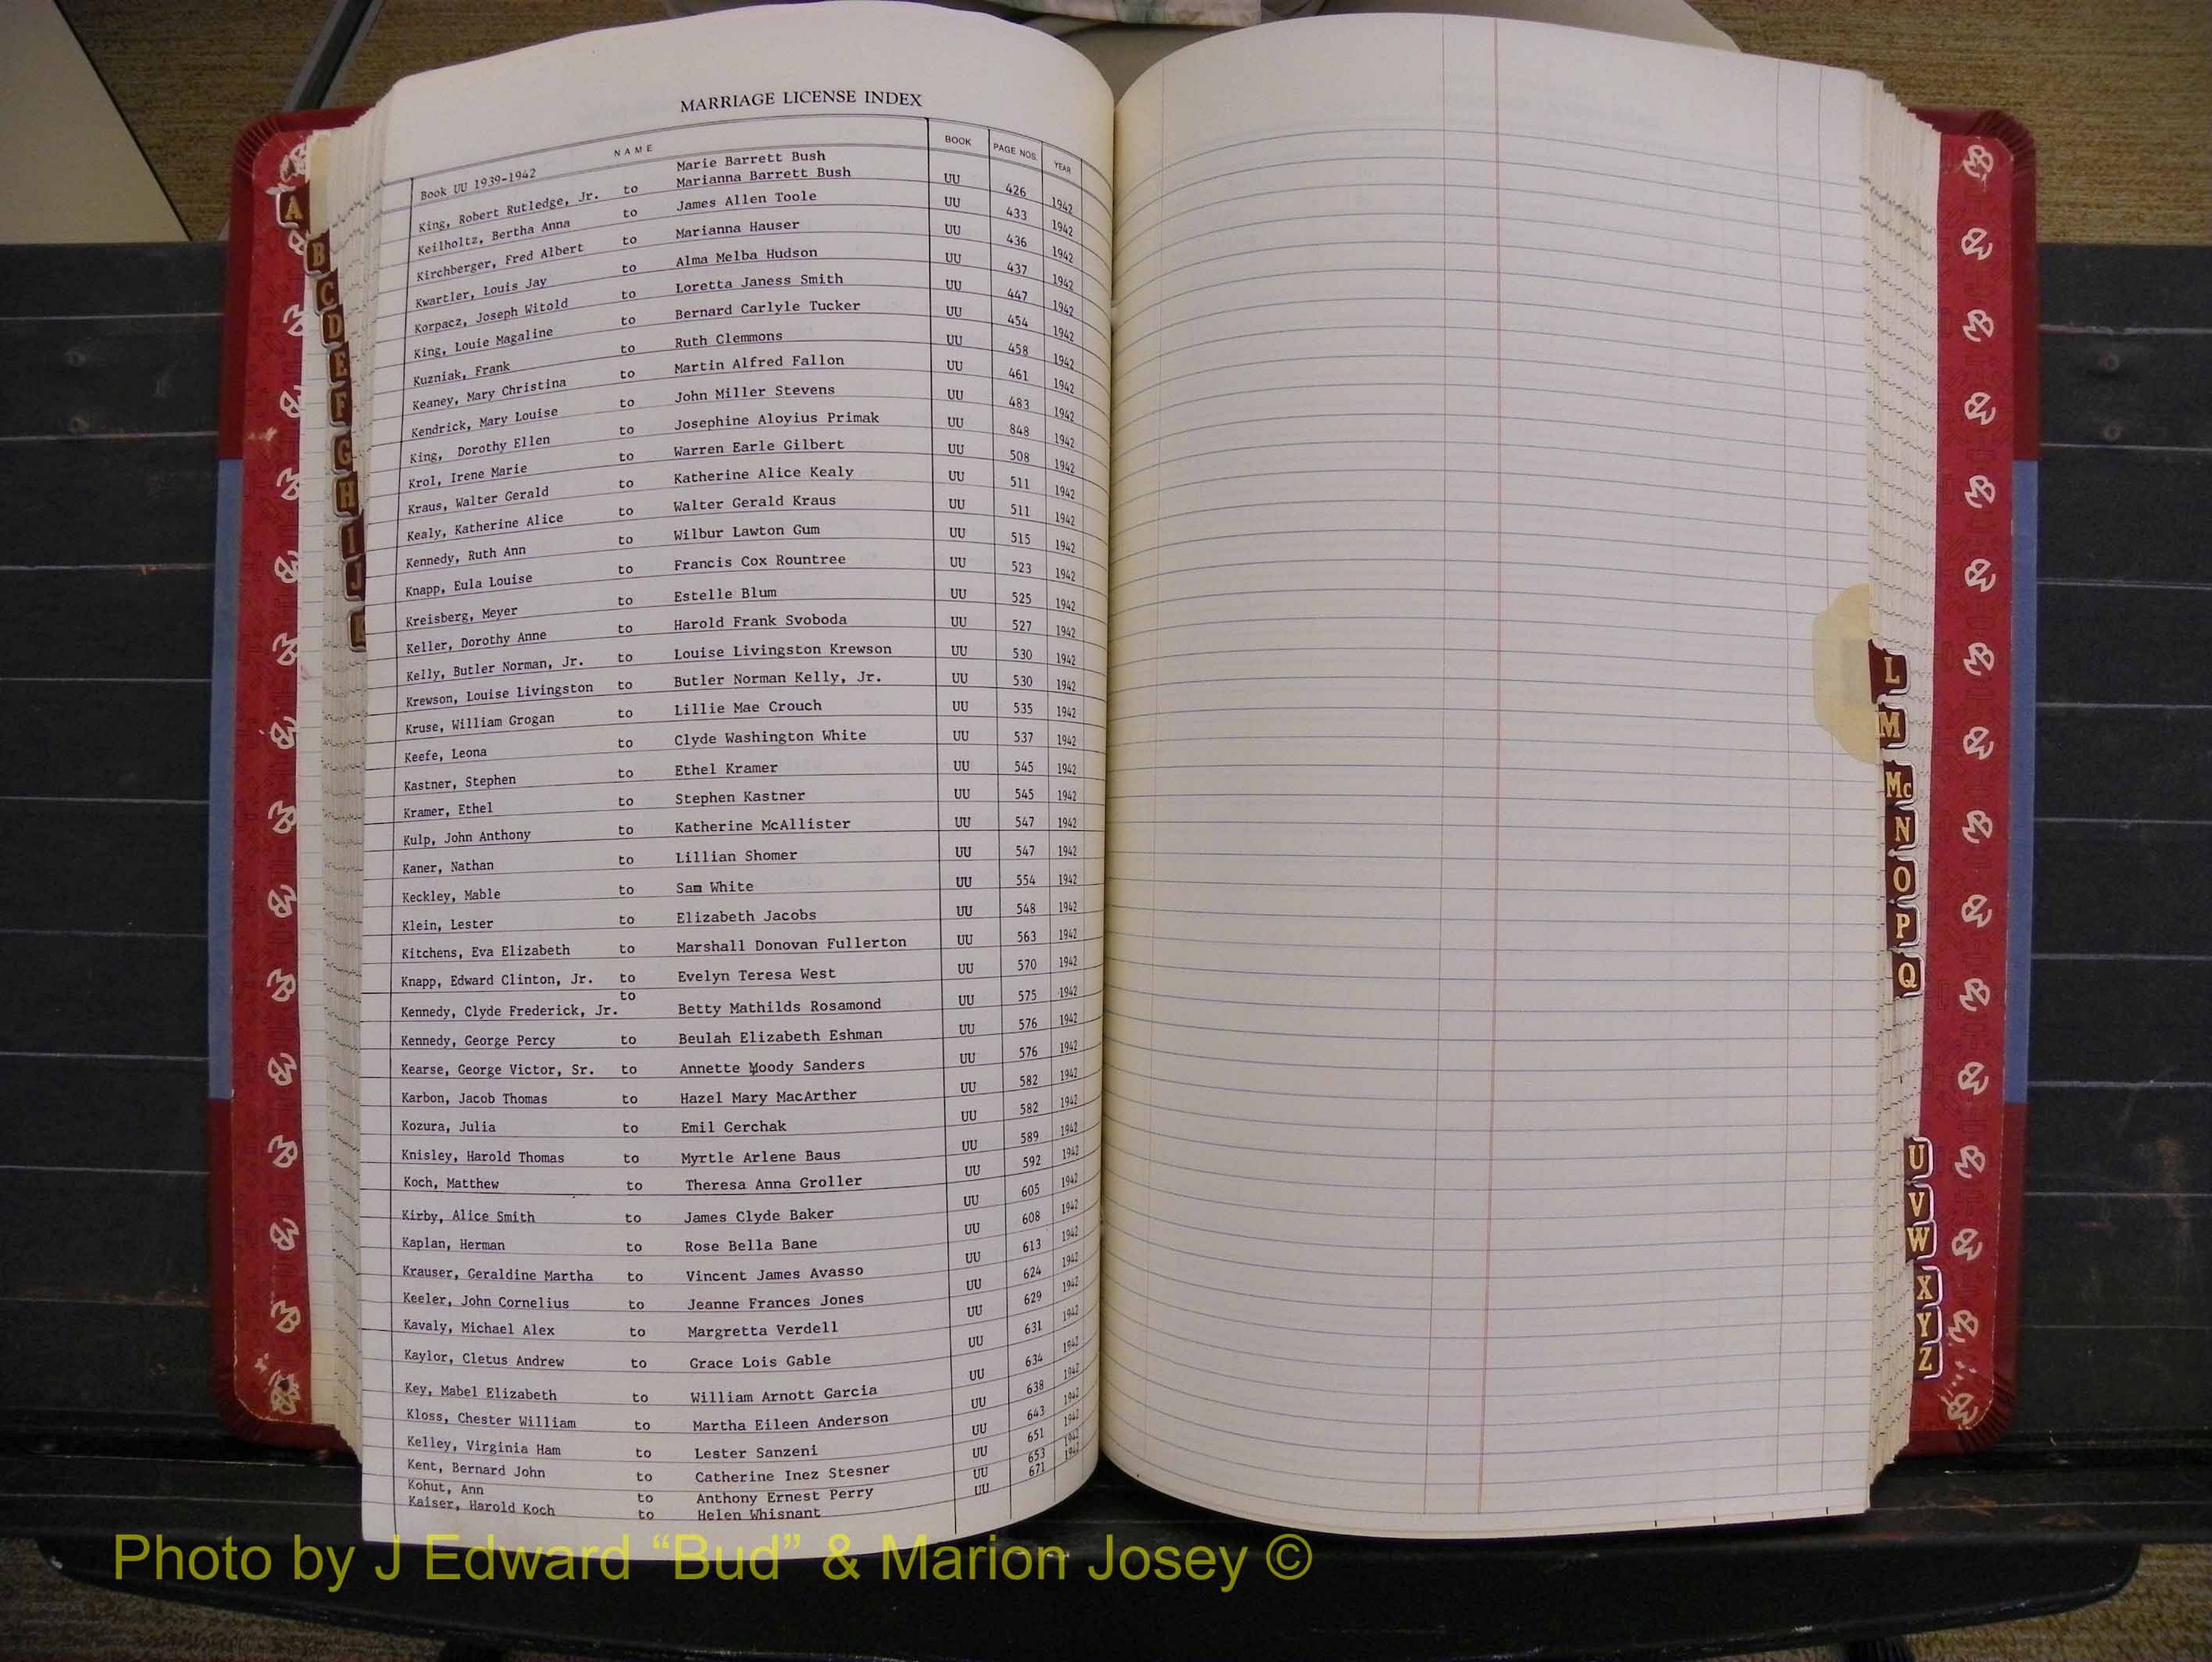 MARRIAGE LICENSE INDEX
NAME BOOK PAGE NOS. YEAR
Book UU 1939-1942 Marie Barrett Bush
King, Robert Rutledge, Jr. to Marianna Barrett Bush UU 426 1942
Keilholtz, Bertha Anna to James Allen Toole UU 433 1942
Kirchberger, Fred Albert to Marianna Hauser UU 436 1942
Kwartler, Louis Jay to Alma Melba Hudson UU 437 1942
Korpacz, Joseph Witold to Loretta Janess Smith UU 447 1942
King, Louie Magaline to Bernard Carlyle Tucker UU 454 1942
Kuzniak, Frank to Ruth Clemmons UU 458 1942
Keaney, Mary Christina to Martin Alfred Fallon UU 461 1942
Kendrick, Mary Louise to John Miller Stevens UU 483 1942
King, Dorothy Ellen to Josephine Aloyius Primak UU 848 1942
Krol, Irene Marie to Warren Earle Gilbert UU 508 1942
Kraus, Walter Gerald to Katherine Alice Kealy UU 511 1942
Kealy, Katherine Alice to Walter Gerald Kraus UU 511 1942
Kennedy, Ruth Ann to Wilbur Lawton Gum UU 515 1942
Knapp, Eula Louise to Francis Cox Rountree UU 523 1942
Kreisberg, Meyer to Estelle Blum UU 525 1942
Keller, Dorothy Anne to Harold Frank Svoboda UU 527 1942
Kelly, Butler Norman, Jr. to Louise Livingston Krewson UU 530 1942
Krewson, Louise Livingston to Butler Norman Kelly, Jr. UU 530 1942
Kruse, William Grogan to Lillie Mae Crouch UU 535 1942
Keefe, Leona to Clyde Washington White UU 537 1942
Kastner, Stephen to Ethel Kramer UU 545 1942
Kramer, Ethel to Stephen Kastner UU 545 1942
Kulp, John Anthony to Katherine McAllister UU 547 1942
Kaner, Nathan to Lillian Shomer UU 547 1942
Keckley, Mable to Sam White UU 554 1942
Klein, Lester to Elizabeth Jacobs UU 548 1942
Kitchens, Eva Elizabeth to Marshall Donovan Fullerton UU 563 1942
Knapp, Edward Clinton, Jr. to Evelyn Teresa West UU 570 1942
Kennedy, Clyde Frederick, Jr. to Betty Mathilds Rosamond UU 575 1942
Kennedy, George Percy to Beulah Elizabeth Eshman UU 576 1942
Kearse, George Victor, Sr. to Annette Moody Sanders UU 576 1942
Karbon, Jacob Thomas to Hazel Mary MacArther UU 582 1942
Kozura, Julia to Emil Gerchak UU 582 1942
Knisley, Harold Thomas to Myrtle Arlene Baus UU 589 1942
Koch, Matthew to Theresa Anna Groller UU 592 1942
Kirby, Alice Smith to James Clyde Baker UU 605 1942
Kaplan, Herman to Rose Bella Bane UU 608 1942
Krauser, Geraldine Martha to Vincent James Avasso UU 613 1942
Keeler, John Cornelius to Jeanne Frances Jones UU 624 1942
Kavaly, Michael Alex to Margretta Verdell UU 629 1942
Kaylor, Cletus Andrew to Grace Lois Gable UU 631 1942
Key, Mabel Elizabeth to William Arnott Garcia UU 634 1942
Kloss, Chester William to Martha Eileen Anderson UU 638 1942
Kelley, Virginia Ham to Lester Sanzeni UU 643 1942
Kent, Bernard John to Catherine Inez Stesner UU 651 1942
Kohut, Ann to Anthony Ernest Perry UU 653 1942
Kaiser, Harold Koch to Helen Whisnant UU 671 1942
A
B
C
D
E
F
G
H
I
J
L
M
Mc
N
O
P
Q
U
V
W
X
Y
Z
Photo by J Edward “Bud” & Marion Josey ©